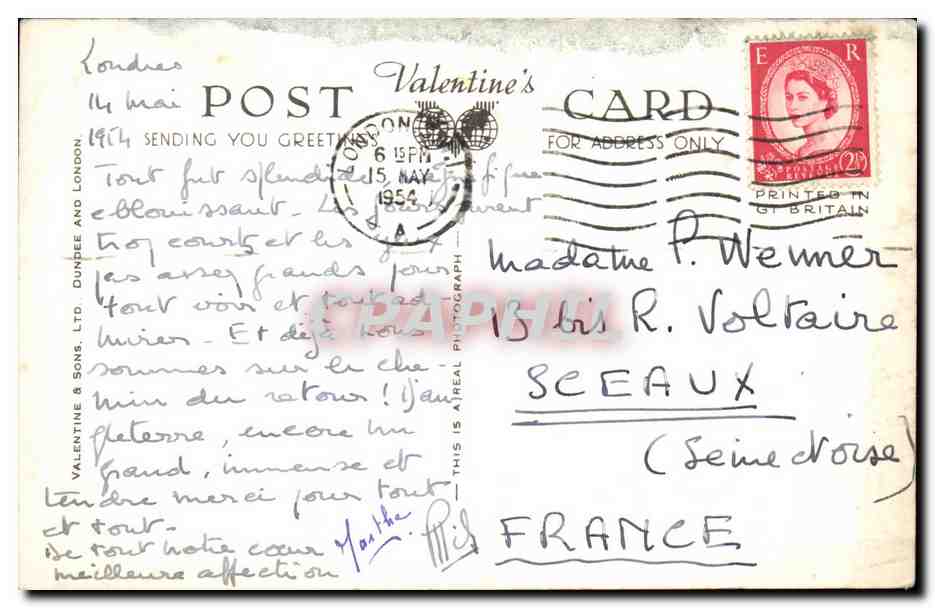 Londres
14 Mai
1954
POST Valentine's CARD
SENDING YOU GREETINGS
FOR ADDRESS ONLY
LONDON
6 15 PM
15 MAY
1954
A
E R
POSTAGE
REVENUE
2½D
PRINTED IN
GT BRITAIN
Tout fut splendide, magnifique
eblouissant. Les jours furent
trop courts et les yeux
pas assez grands pour
tout voir et tout ad-
mirer. Et déjà nous
sommes sur le che-
min du retour! D'an-
gleterre, encore un
grand, immense et
tendre merci pour tout
et tout.
De tout notre cœur
meilleure affection
Marthe.
VALENTINE & SONS, LTD. DUNDEE AND LONDON.
THIS IS A REAL PHOTOGRAPH
CPAPHIL
Madame P. Wenner
13 bis R. Voltaire
SCEAUX
(Seine et Oise)
FRANCE